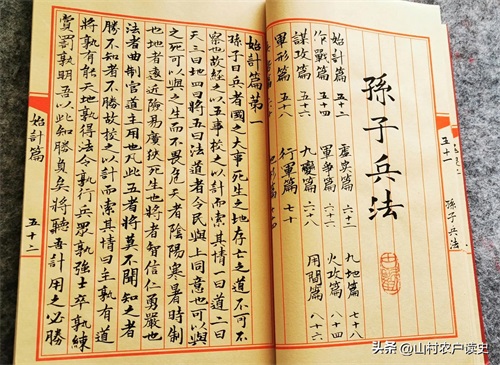 五十一
孫子兵法
孫子兵法
始計篇 五十二 虛實篇 六十二 九地篇 七十八
作戰篇 五十四 軍爭篇 六十六 火攻篇 八十四
謀攻篇 五十六 九變篇 六十八 用間篇 八十六
軍形篇 五十八 行軍篇 七十
始計篇第一
孫子曰兵者國之大事死生之地存亡之道不可不
察也故經之以五事校之以計而索其情一曰道二曰
天三曰地四曰將五曰法道者令民與上同意也可以與
之死可以與之生而不畏危天者陰陽寒暑時制
也地者遠近險易廣狹死生也將者智信仁勇嚴也
法者曲制官道主用也凡此五者將莫不聞知之者
勝不知者不勝故校之以計而索其情曰主孰有道
將孰有能天地孰得法令孰行兵眾孰強士卒孰練
賞罰孰明吾以此知勝負矣將聽吾計用之必勝
始計篇
五十二
头条 @山村农户读史